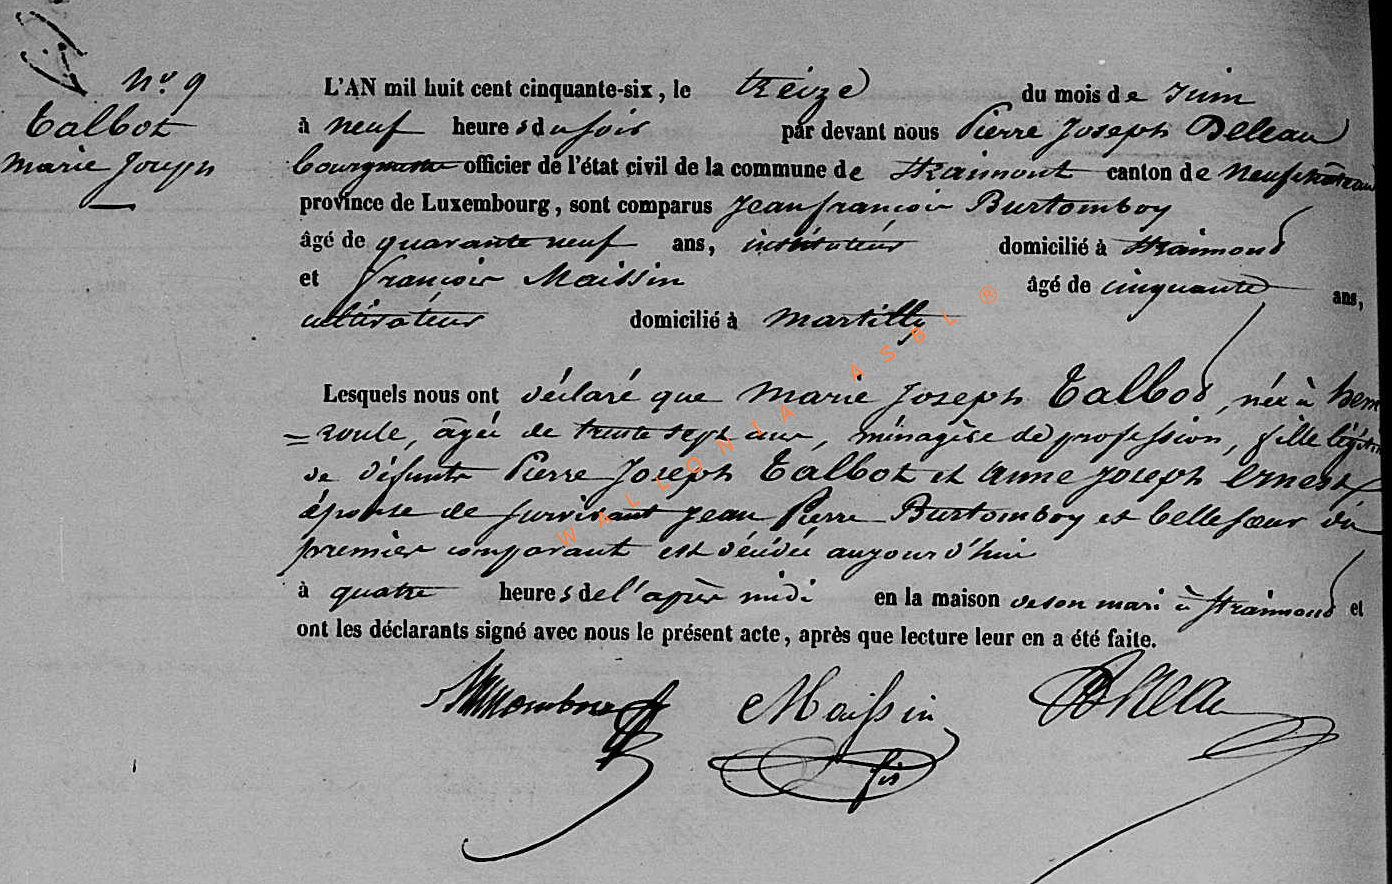 N.º 9
Talbot
Marie Joseph
L'AN mil huit cent cinquante-six, le treize du mois de Juin
à neuf heures du soir par devant nous Pierre Joseph Deleau
bourgmestre officier de l'état civil de la commune de Straimont canton de Neufchâteau
province de Luxembourg, sont comparus Jean françois Burtomboy
âgé de quarante neuf ans, instituteur domicilié à Straimont
et françois Maissin âgé de cinquante ans,
cultivateur domicilié à Martilly
Lesquels nous ont déclaré que Marie Joseph Talbot, née à hem
= roulle, âgée de trente sept ans, ménagère de profession, fille légitime
de défunts Pierre Joseph Talbot et Anne Joseph Ernest
épouse de survivant Jean Pierre Burtomboy et belle sœur du
premier comparant est décédée aujourd'hui
à quatre heures de l'après midi en la maison de son mari à Straimont et
ont les déclarants signé avec nous le présent acte, après que lecture leur en a été faite.
Maissin
fils
WALLONIA ASBL ®